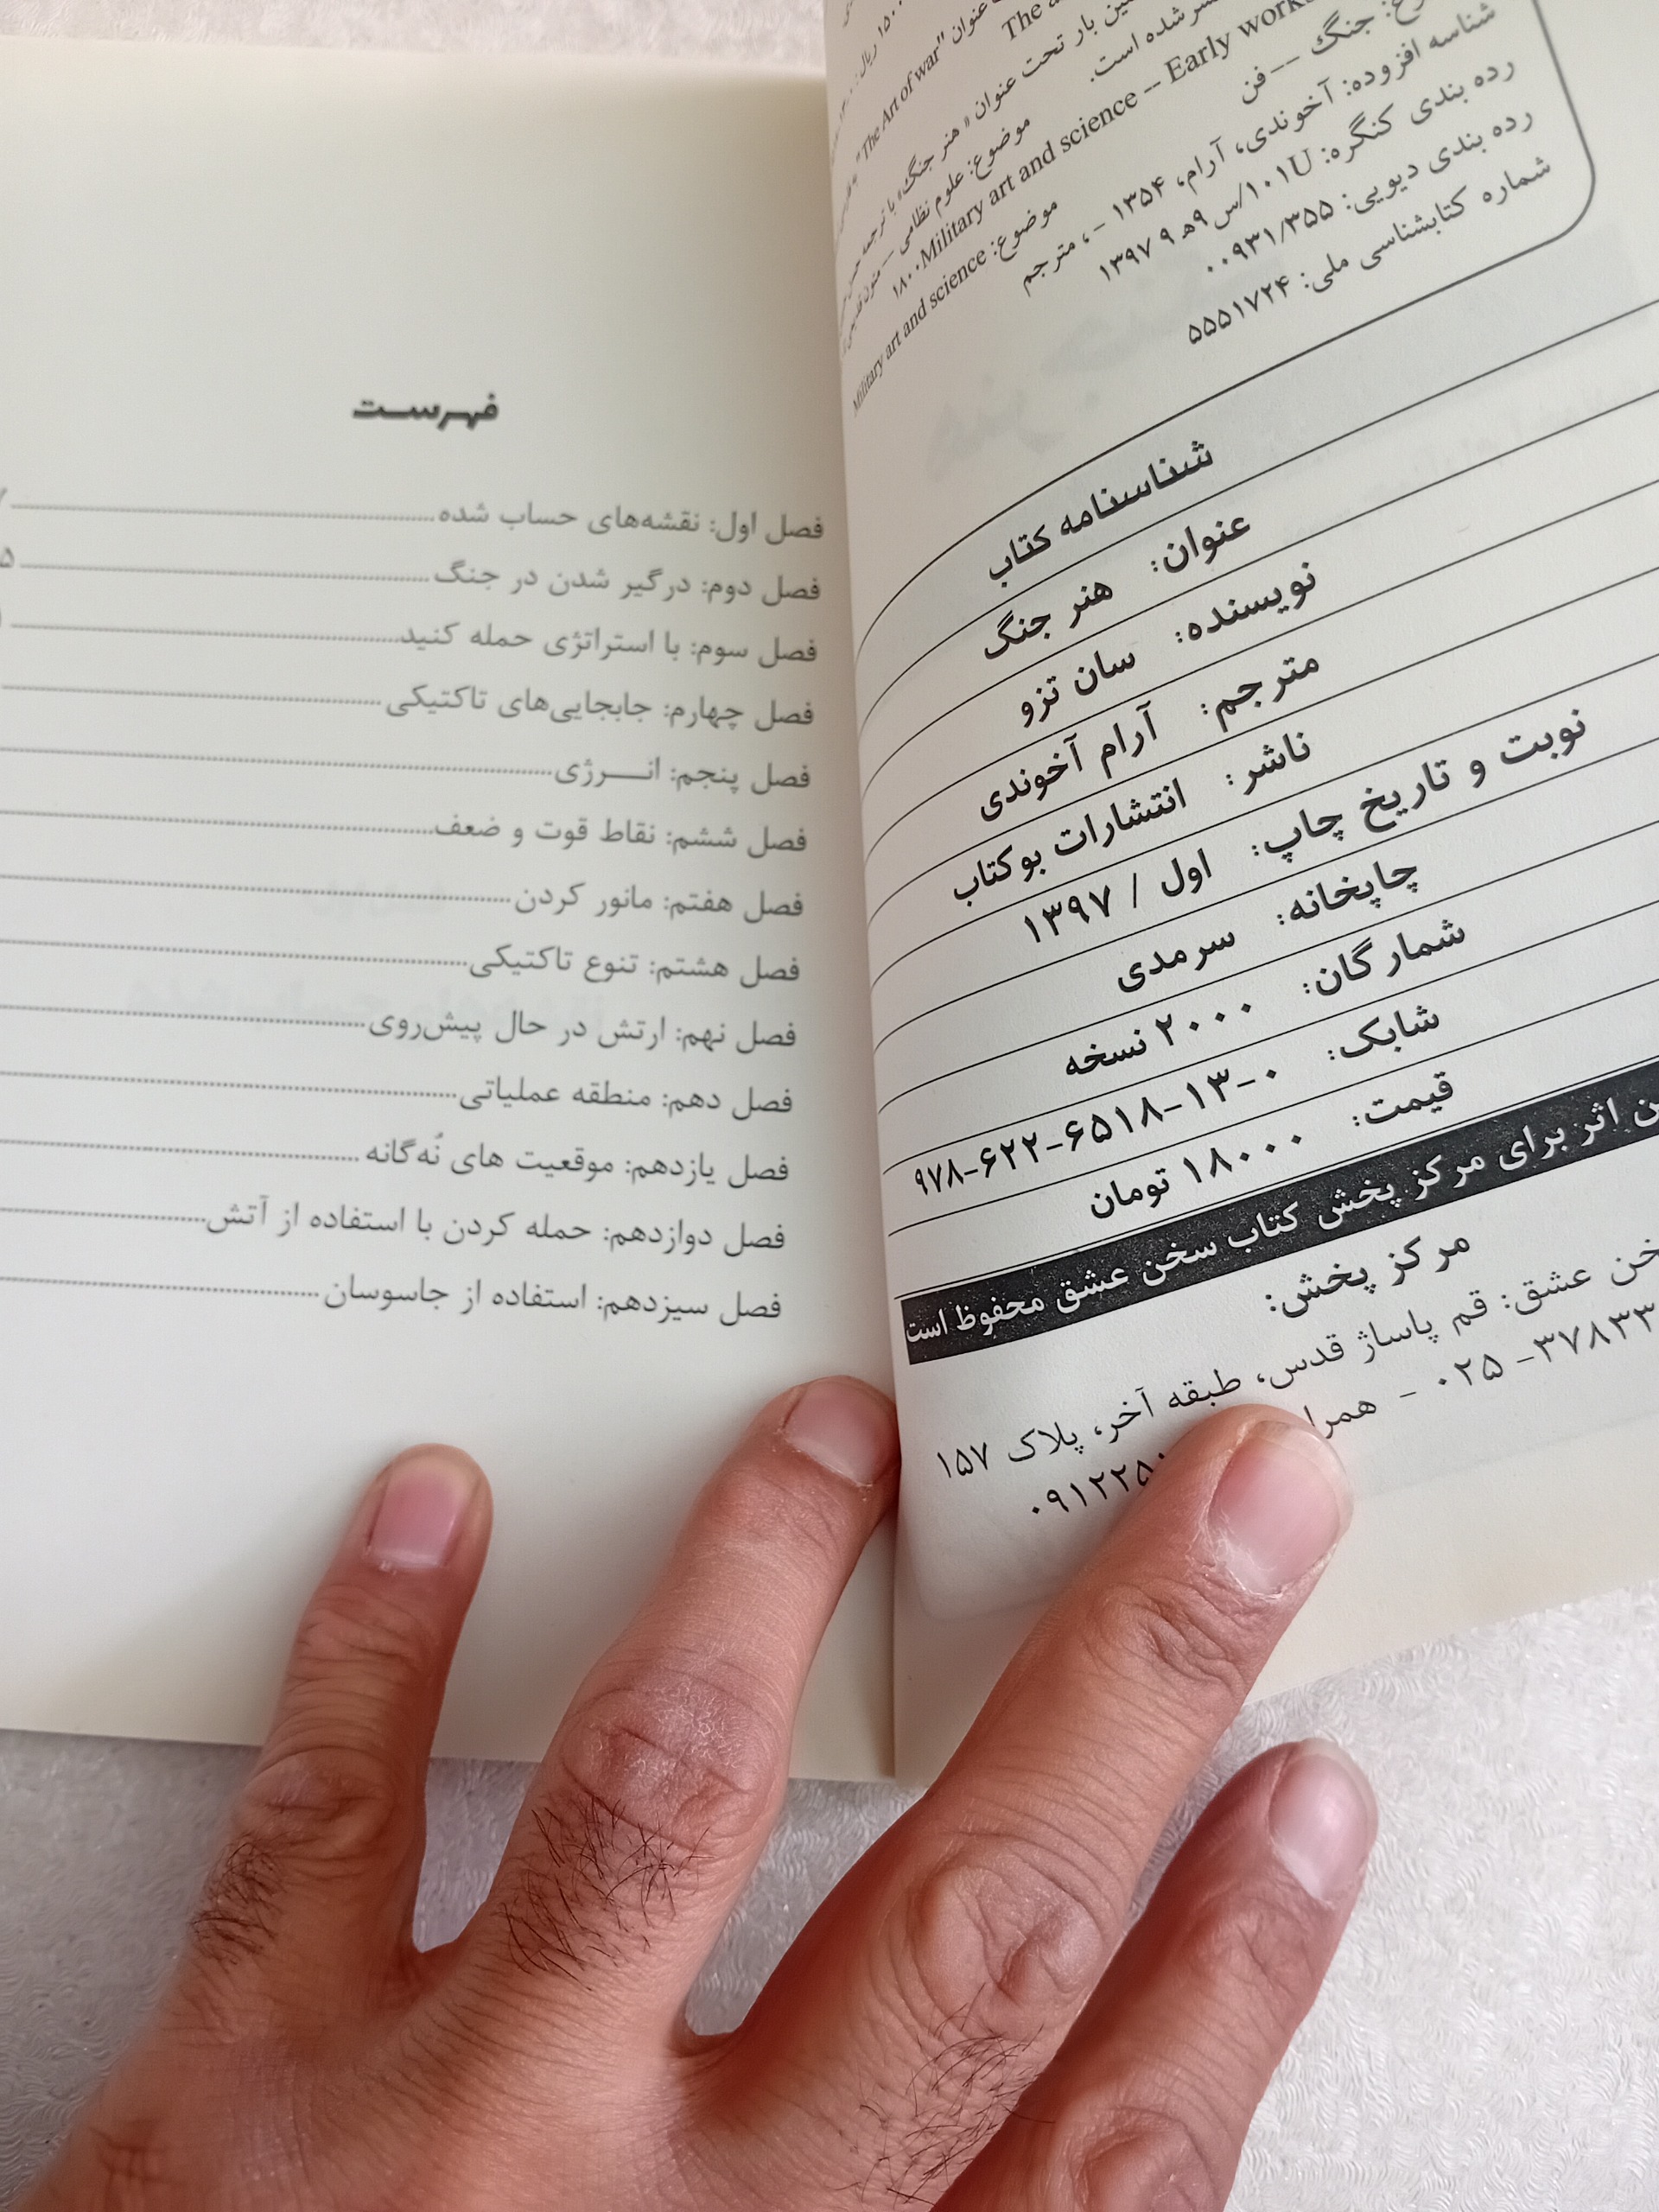 "The Art of war"
شده است.
موضوع: علوم نظامی -- متون قدیمی
Military art and science -- Early works ۱۸۰۰
موضوع: جنگ -- فن
Military art and science :موضوع
شناسه افزوده: آخوندی، آرام، ۱۳۵۴ - ، مترجم
رده بندی کنگره: U۱۰۱/س۹ﻫ۹ ۱۳۹۷
رده بندی دیویی: ۳۵۵/۰۰۹۳۱
شماره کتابشناسی ملی: ۵۵۵۱۷۲۴
شناسنامه کتاب
عنوان: هنر جنگ
نویسنده: سان تزو
مترجم: آرام آخوندی
ناشر: انتشارات بوکتاب
نوبت و تاریخ چاپ: اول / ۱۳۹۷
چاپخانه: سرمدی
شمارگان: ۲۰۰۰ نسخه
شابک: ۰-۱۳-۶۵۱۸-۶۲۲-۹۷۸
قیمت: ۱۸۰۰۰ تومان
اثر برای مرکز پخش کتاب سخن عشق محفوظ است
مرکز پخش:
عشق: قم پاساژ قدس، طبقه آخر، پلاک ۱۵۷
فهرست
فصل اول: نقشه‌های حساب شده
فصل دوم: درگیر شدن در جنگ
فصل سوم: با استراتژی حمله کنید
فصل چهارم: جابجایی‌های تاکتیکی
فصل پنجم: انـــرژی
فصل ششم: نقاط قوت و ضعف
فصل هفتم: مانور کردن
فصل هشتم: تنوع تاکتیکی
فصل نهم: ارتش در حال پیش‌روی
فصل دهم: منطقه عملیاتی
فصل یازدهم: موقعیت های نُه‌گانه
فصل دوازدهم: حمله کردن با استفاده از آتش
فصل سیزدهم: استفاده از جاسوسان